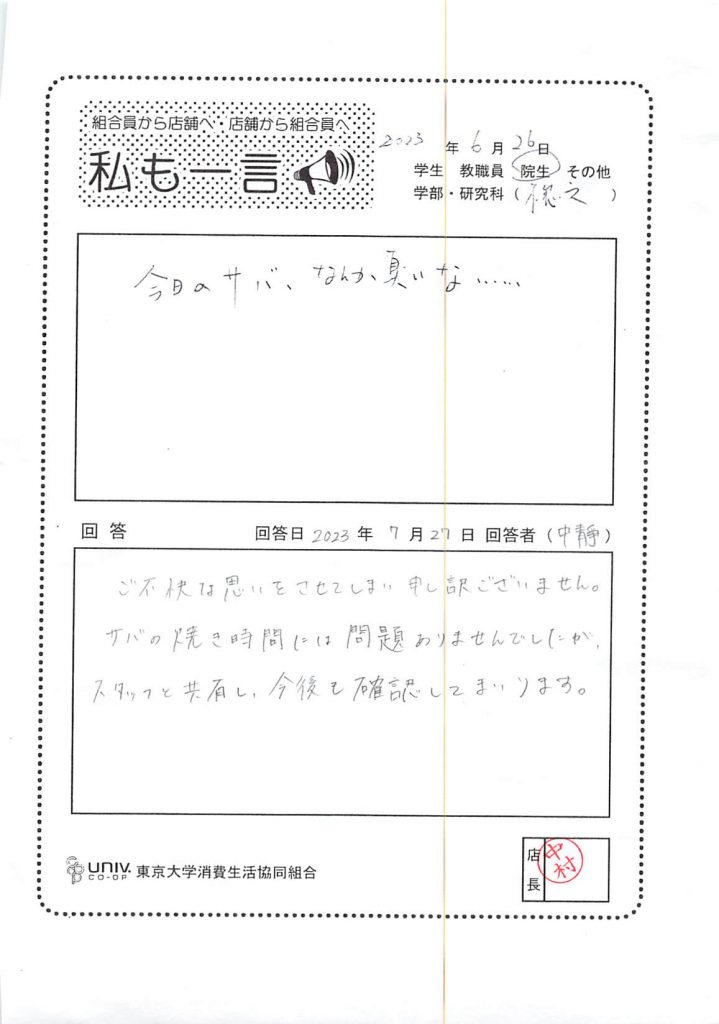 組合員から店舗へ・店舗から組合員へ
私も一言
2023 年 6 月 26 日
学生 教職員 院生 その他
学部・研究科 ( 総文 )
今日のサバ、なんか臭いな……
回答 回答日 2023 年 7 月 27 日 回答者 (中静)
ご不快な思いをさせてしまい申し訳ございません。
サバの焼き時間には問題ありませんでしたが、
スタッフと共有し、今後も確認してまいります。
UNIV. CO-OP 東京大学消費生活協同組合
店長 中村